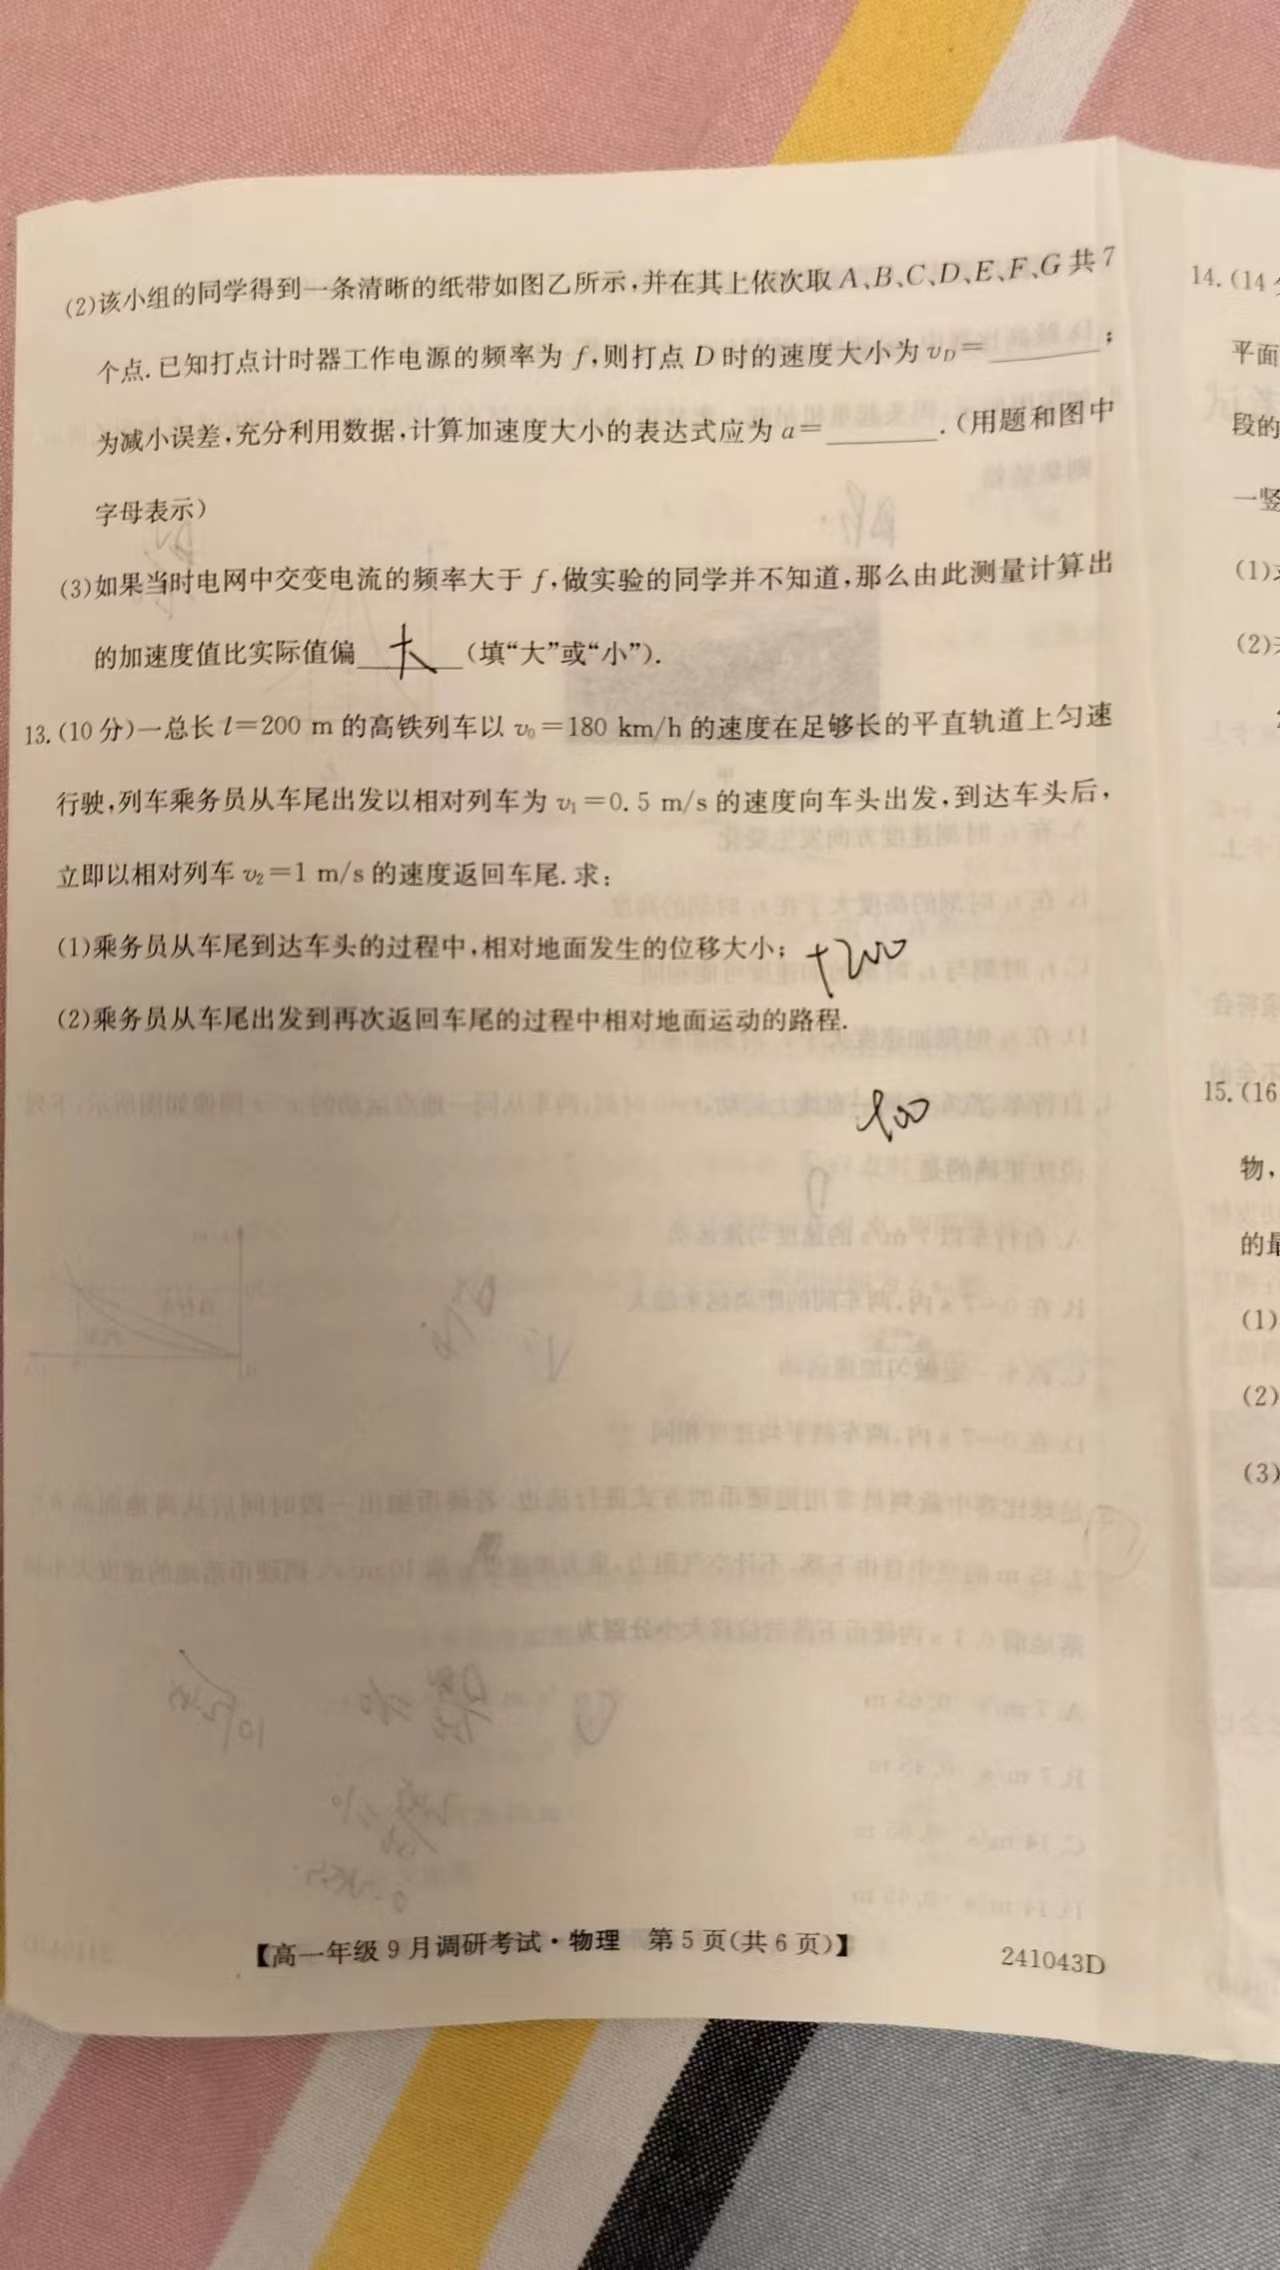 (2)该小组的同学得到一条清晰的纸带如图乙所示,并在其上依次取A、B、C、D、E、F、G共7
个点.已知打点计时器工作电源的频率为f,则打点D时的速度大小为v_D=________;
为减小误差,充分利用数据,计算加速度大小的表达式应为a=________.(用题和图中
字母表示)
(3)如果当时电网中交变电流的频率大于f,做实验的同学并不知道,那么由此测量计算出
的加速度值比实际值偏 大 (填“大”或“小”).
13.(10分)一总长l=200 m的高铁列车以v₀=180 km/h的速度在足够长的平直轨道上匀速
行驶,列车乘务员从车尾出发以相对列车为v₁=0.5 m/s的速度向车头出发,到达车头后,
立即以相对列车v₂=1 m/s的速度返回车尾.求:
(1)乘务员从车尾到达车头的过程中,相对地面发生的位移大小; +200
(2)乘务员从车尾出发到再次返回车尾的过程中相对地面运动的路程.
400
【高一年级9月调研考试·物理 第5页(共6页)】
241043D
14.(14
平面
段的
一竖
(1)
(2)
15.(16
物,
的最
(1)
(2)
(3)